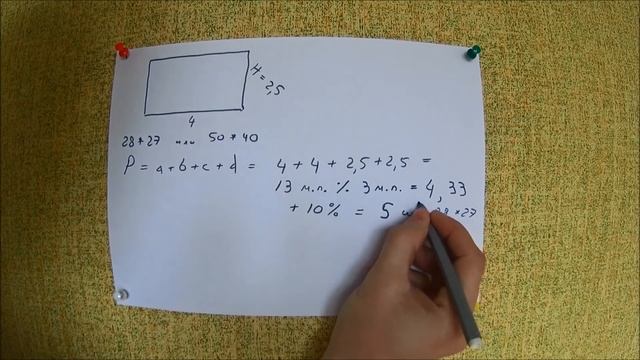 H = 2,5
4
28*27 или 50*40
P = a+b+c+d = 4+4+2,5+2,5 =
13 м.п. % 3 м.п. = 4,33
+ 10% = 5 28*27